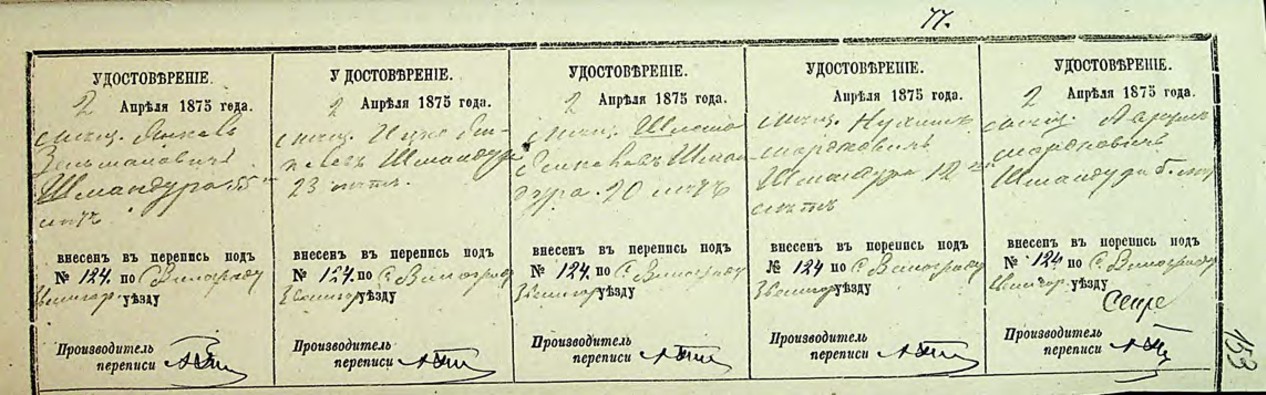 77.
УДОСТОВѢРЕНІЕ.
2 Апрѣля 1875 года.
мѣщ. Янкевъ
Зельмановичъ
Шмандура 55
лѣтъ
внесенъ въ перепись подъ
№ 124. по с. Винограду
Звенигор. уѣзду
Производитель
переписи
УДОСТОВѢРЕНІЕ.
2 Апрѣля 1875 года.
мѣщ. Ицко Ян-
келевъ Шмандура
23 лѣтъ.
внесенъ въ перепись подъ
№ 124 по с. Винограду
Звенигор. уѣзду
Производитель
переписи
УДОСТОВѢРЕНІЕ.
2 Апрѣля 1875 года.
мѣщ. Шлема
Янкелевъ Шман-
дура. 20 лѣтъ
внесенъ въ перепись подъ
№ 124. по с. Винограду
Звенигор. уѣзду
Производитель
переписи
УДОСТОВѢРЕНІЕ.
2 Апрѣля 1875 года.
мѣщ. Нухимъ
Мордковичъ
Шмандура 12
лѣтъ
внесенъ въ перепись подъ
№ 124 по с. Винограду
Звенигор. уѣзду
Производитель
переписи
УДОСТОВѢРЕНІЕ.
2 Апрѣля 1875 года.
мѣщ.
Мордковичъ
Шмандура
внесенъ въ перепись подъ
№ 124 по с. Винограду
Звенигор. уѣзду
Производитель
переписи
153